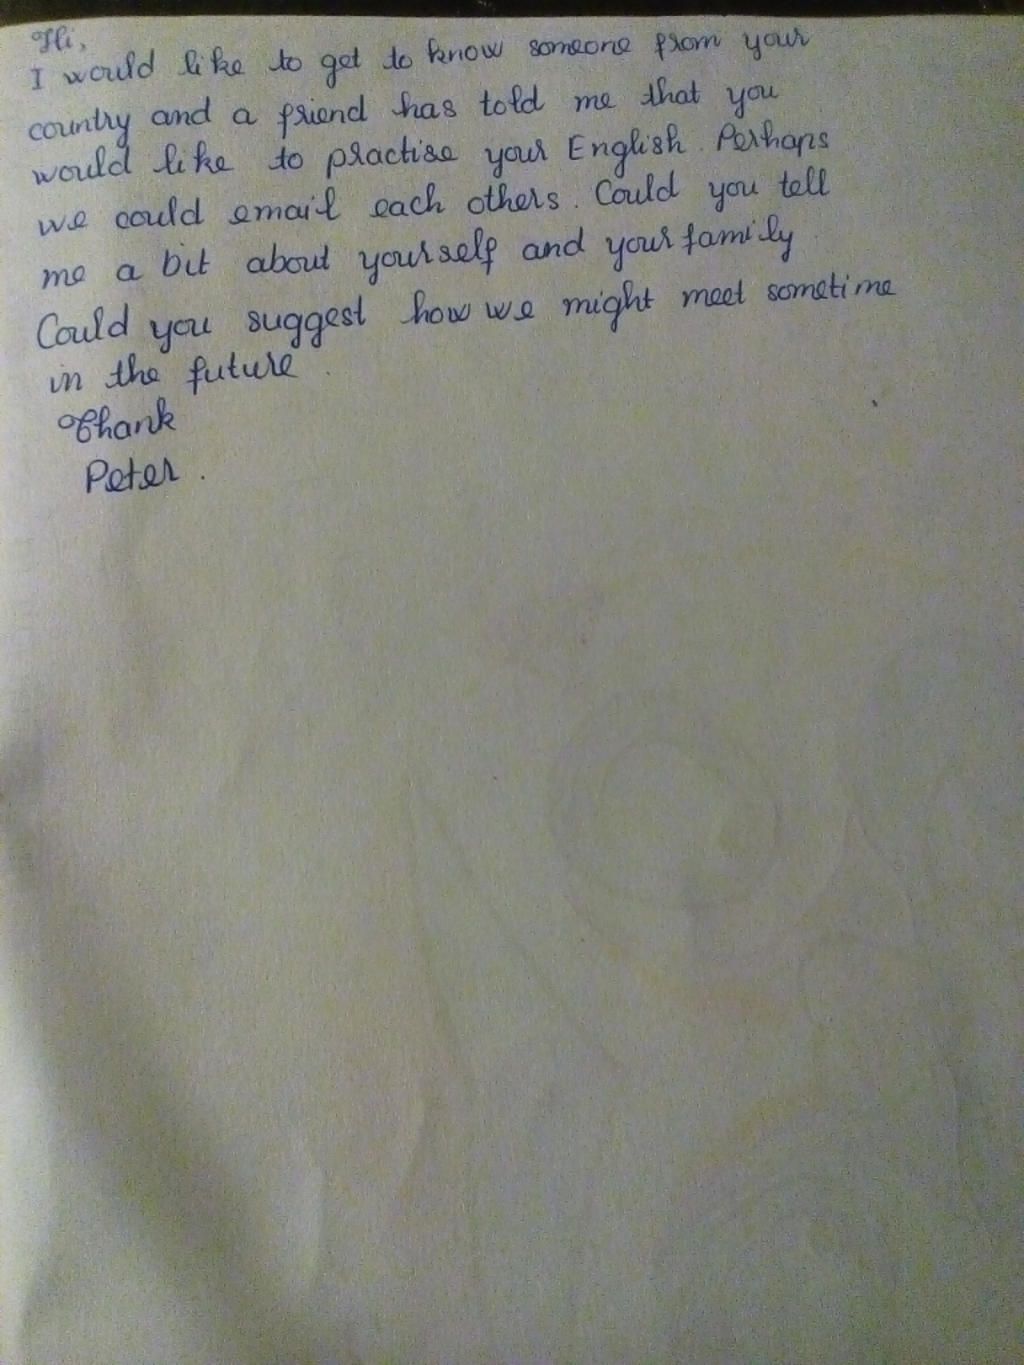 Hi,
I would like to get to know someone from your
country and a friend has told me that you
would like to practise your English. Perhaps
we could email each others. Could you tell
me a bit about yourself and your family.
Could you suggest how we might meet sometime
in the future.
Thank
Peter.